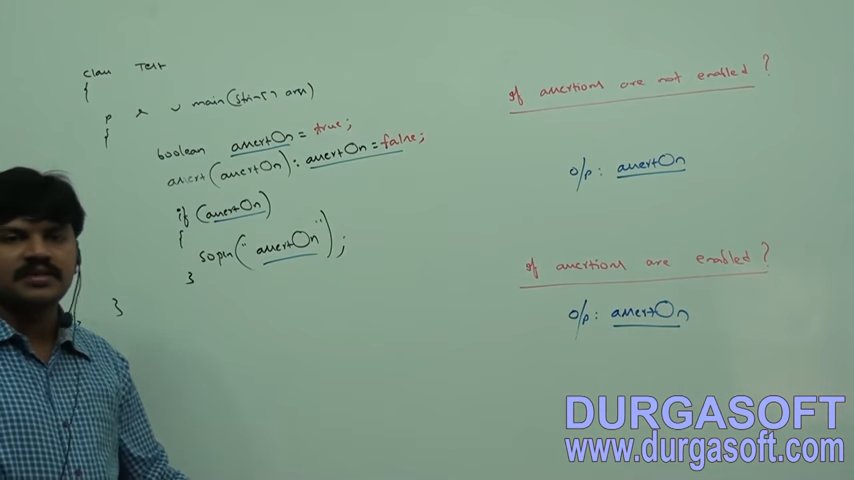 class Test
{
p s v main(String[] args)
{
boolean assertOn = true;
assert(assertOn) : assertOn = false;
if (assertOn)
{
sopln("assertOn");
}
}
If assertions are not enabled ?
o/p : assertOn
If assertions are enabled ?
o/p : assertOn
DURGASOFT
www.durgasoft.com